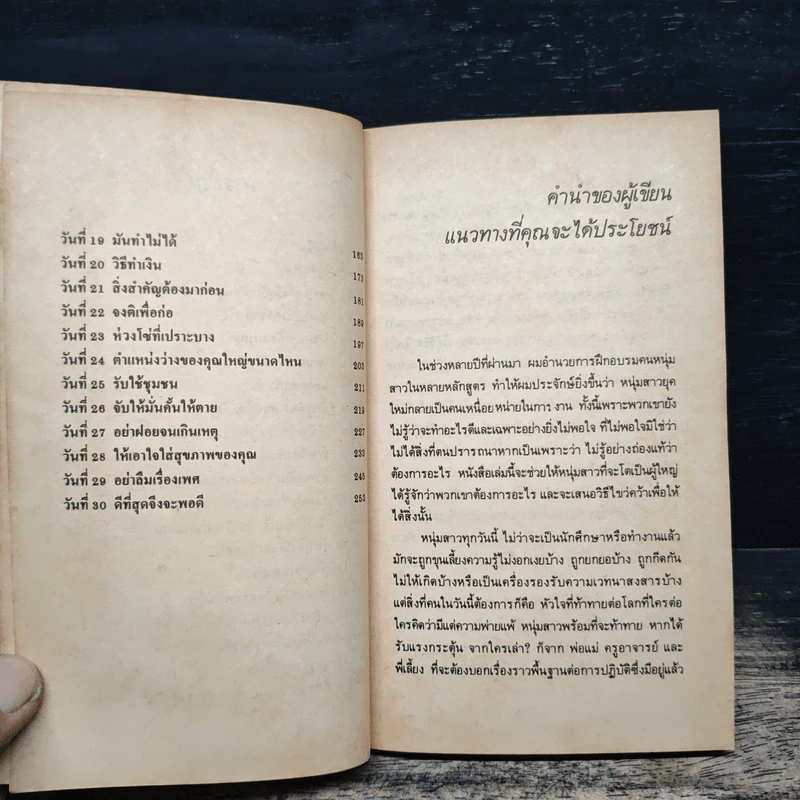 วันที่ 19 มันทำไม่ได้ 163
วันที่ 20 วิธีทำเงิน 173
วันที่ 21 สิ่งสำคัญต้องมาก่อน 181
วันที่ 22 จงติเพื่อก่อ 189
วันที่ 23 ห่วงโซ่ที่เปราะบาง 197
วันที่ 24 ตำแหน่งว่างของคุณใหญ่ขนาดไหน 203
วันที่ 25 รับใช้ชุมชน 211
วันที่ 26 จับให้มั่นคั้นให้ตาย 219
วันที่ 27 อย่าฝอยจนเกินเหตุ 227
วันที่ 28 ให้เอาใจใส่สุขภาพของคุณ 233
วันที่ 29 อย่าลืมเรื่องเพศ 245
วันที่ 30 ดีที่สุดจึงจะพอดี 253
คำนำของผู้เขียน
แนวทางที่คุณจะได้ประโยชน์
ในช่วงหลายปีที่ผ่านมา ผมอำนวยการฝึกอบรมคนหนุ่ม
สาวในหลายหลักสูตร ทำให้ผมประจักษ์ยิ่งขึ้นว่า หนุ่มสาวยุค
ใหม่กลายเป็นคนเหนื่อยหน่ายในการงาน ทั้งนี้เพราะพวกเขายัง
ไม่รู้ว่าจะทำอะไรดีและเฉพาะอย่างยิ่งไม่พอใจ ที่ไม่พอใจมิใช่ว่า
ไม่ได้สิ่งที่ตนปรารถนาหากเป็นเพราะว่า ไม่รู้อย่างถ่องแท้ว่า
ต้องการอะไร หนังสือเล่มนี้จะช่วยให้หนุ่มสาวที่จะโตเป็นผู้ใหญ่
ได้รู้จักว่าพวกเขาต้องการอะไร และจะเสนอวิธีไขว่คว้าเพื่อให้
ได้สิ่งนั้น
หนุ่มสาวทุกวันนี้ ไม่ว่าจะเป็นนักศึกษาหรือทำงานแล้ว
มักจะถูกขุนเลี้ยงความรู้ไม่งอกเงยบ้าง ถูกยกยอบ้าง ถูกกีดกัน
ไม่ให้เกิดบ้างหรือเป็นเครื่องรองรับความเวทนาสงสารบ้าง
แต่สิ่งที่คนในวันนี้ต้องการก็คือ หัวใจที่ท้าทายต่อโลกที่ใครต่อ
ใครคิดว่ามีแต่ความพ่ายแพ้ หนุ่มสาวพร้อมที่จะท้าทาย หากได้
รับแรงกระตุ้น จากใครเล่า? ก็จาก พ่อแม่ ครูอาจารย์ และ
พี่เลี้ยง ที่จะต้องบอกเรื่องราวพื้นฐานต่อการปฏิบัติซึ่งมีอยู่แล้ว